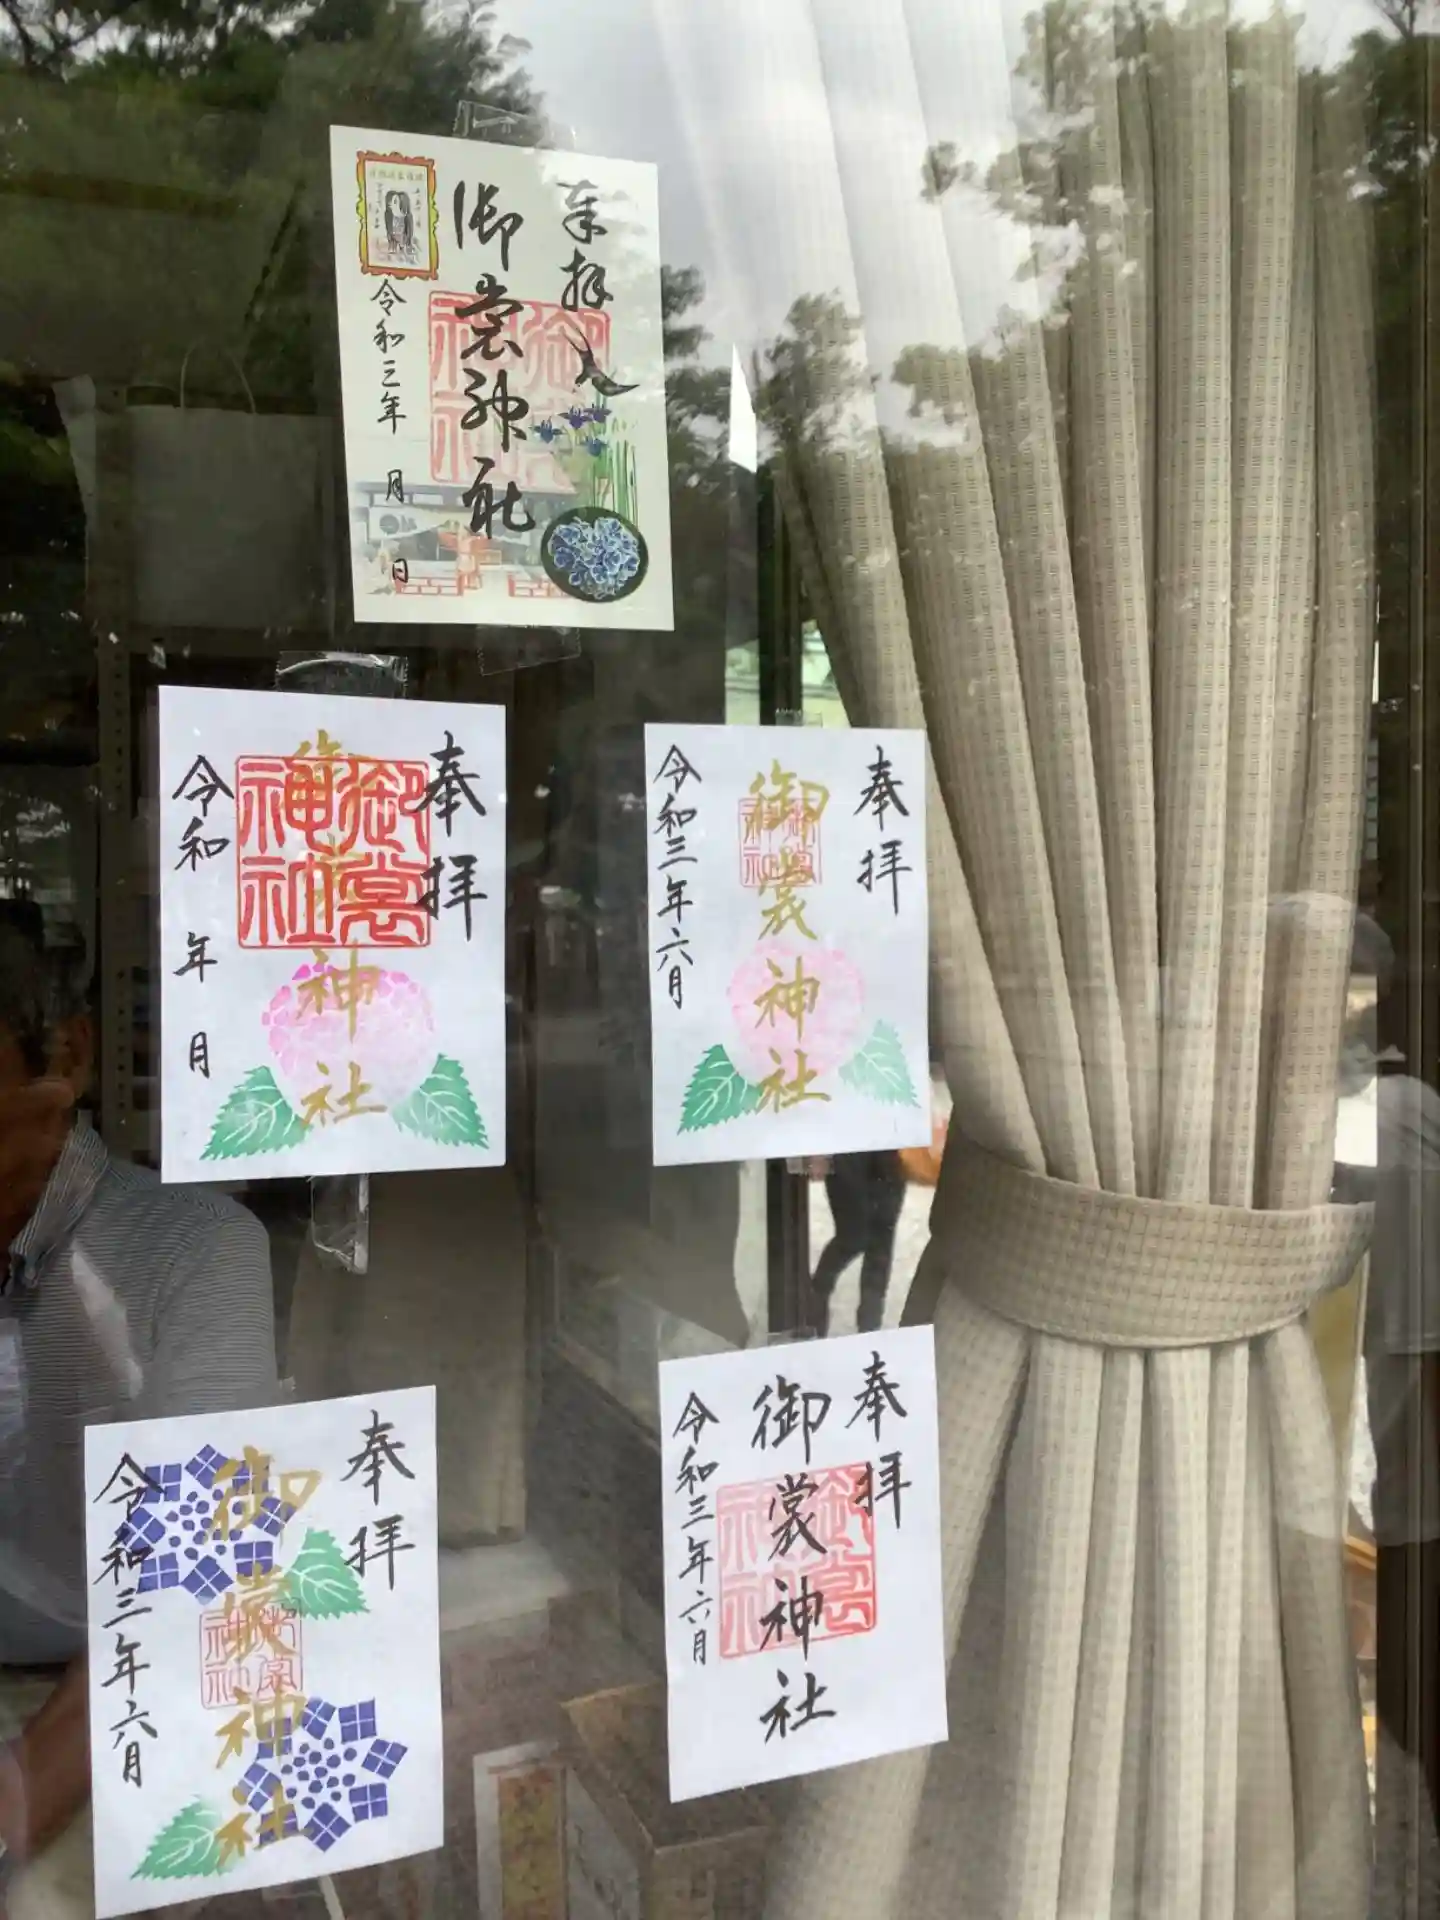 奉拝
御裳神社
令和三年 月 日
御裳神社
奉拝
御裳神社
令和 年 月
御裳神社
奉拝
御裳神社
令和三年六月
御裳神社
奉拝
御裳神社
令和三年六月
御裳神社
奉拝
御裳神社
令和三年六月
御裳神社